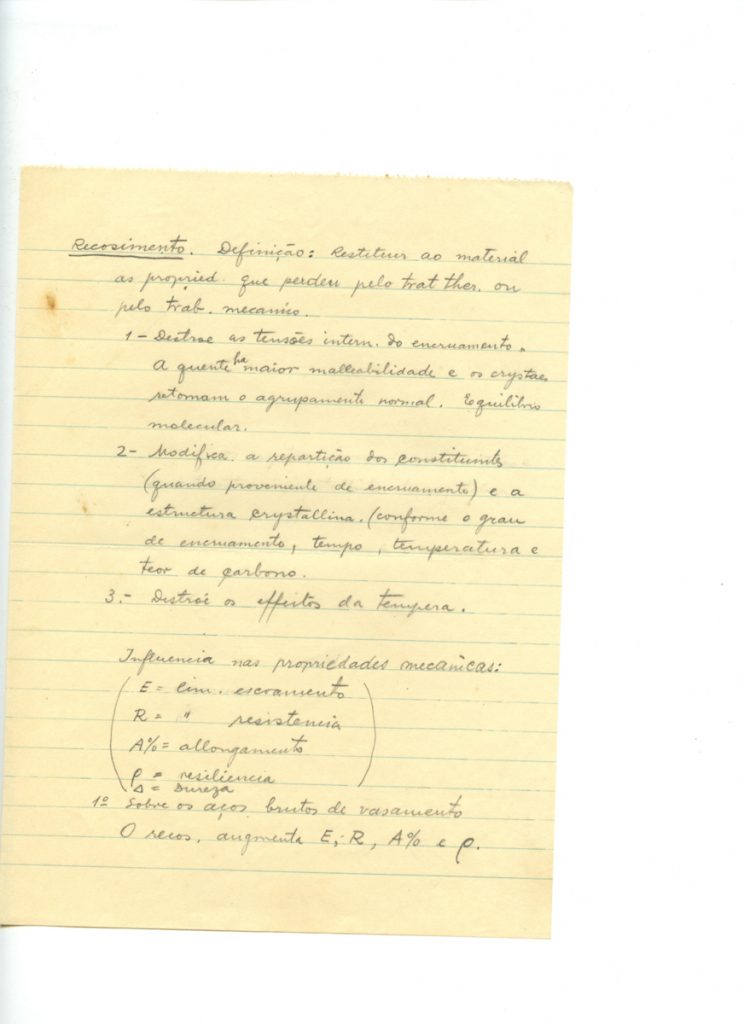 Recosimento. Definição: Restituir ao material
as propried. que perdeu pelo trat ther. ou
pelo trab. mecanico.
1 - Destroe as tensões intern. do encruamento.
A quente ha maior malleabilidade e os crystaes
retomam o agrupamento normal. Equilibrio
molecular.
2 - Modifica a repartição dos constituintes
(quando proveniente de encruamento) e a
estructura crystallina. (conforme o grau
de encruamento, tempo, temperatura e
teor de carbono.
3.- Destróe os effeitos da tempera.
Influencia nas propriedades mecanicas:
E = lim. escoamento
R = " resistencia
A% = allongamento
ρ = resiliencia
Δ = Dureza
1º Sobre os aços brutos de vasamento
O recos. augmenta E, R, A% e ρ.